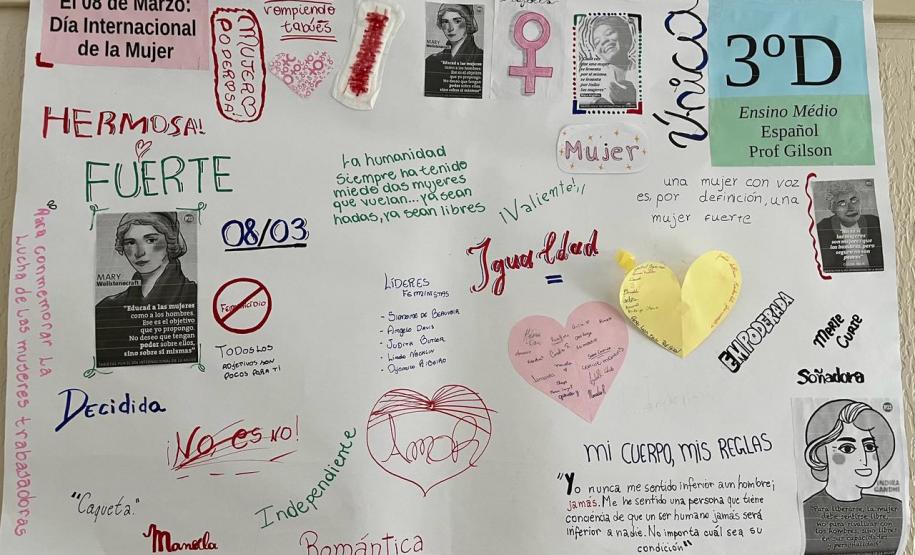 El 08 de Marzo:
Día Internacional
de la Mujer
¡MUJER
PODERPSA!
rompiendo
tabúes
MARY
Wollstonecraft
"Educad a las mujeres
como a los hombres.
Ese es el objetivo
que yo propongo.
No deseo que tengan
poder sobre ellos,
sino sobre sí mismas"
Única
3ºD
Ensino Médio
Español
Prof Gilson
HERMOSA!
FUERTE
La humanidad
siempre ha tenido
miedo das mujeres
que vuelan... ya sean
hadas, ya sean libres
Mujer
¡Valiente!
una mujer con voz
es, por definción, una
mujer fuerte
Para conmemorar la
Lucha de las mujeres trabajadoras
MARY
Wollstonecraft
"Educad a las mujeres
como a los hombres.
Ese es el objetivo
que yo propongo.
No deseo que tengan
poder sobre ellos,
sino sobre sí mismas"
08/03
Feminicidio
TODOS LOS
ADJETIVOS SON
POCOS PARA TI
LÍDERES
FEMINISTAS
- Simone de Beauvoir
- Angela Davis
- Judith Butler
- Linda Nochlin
- Djamila Ribeiro
Igualdad
=
EMPODERADA
Marie
Curie
Soñadora
Decidida
¡No, es NO!
Independiente
Amor
"Caqueta."
Manuela
Romántica
MI CUERPO, MIS REGLAS
"Yo nunca me sentido inferior a un hombre;
jamás. Me he sentido una persona que tiene
conciencia de que un ser humano jamás será
inferior a nadie. No importa cuál sea su
condición"
INDIRA
GANDHI
"Para liberarse, la mujer
debe sentirse libre,
no para rivalizar con
los hombres, sino libres
en sus capacidades
y personalidad"